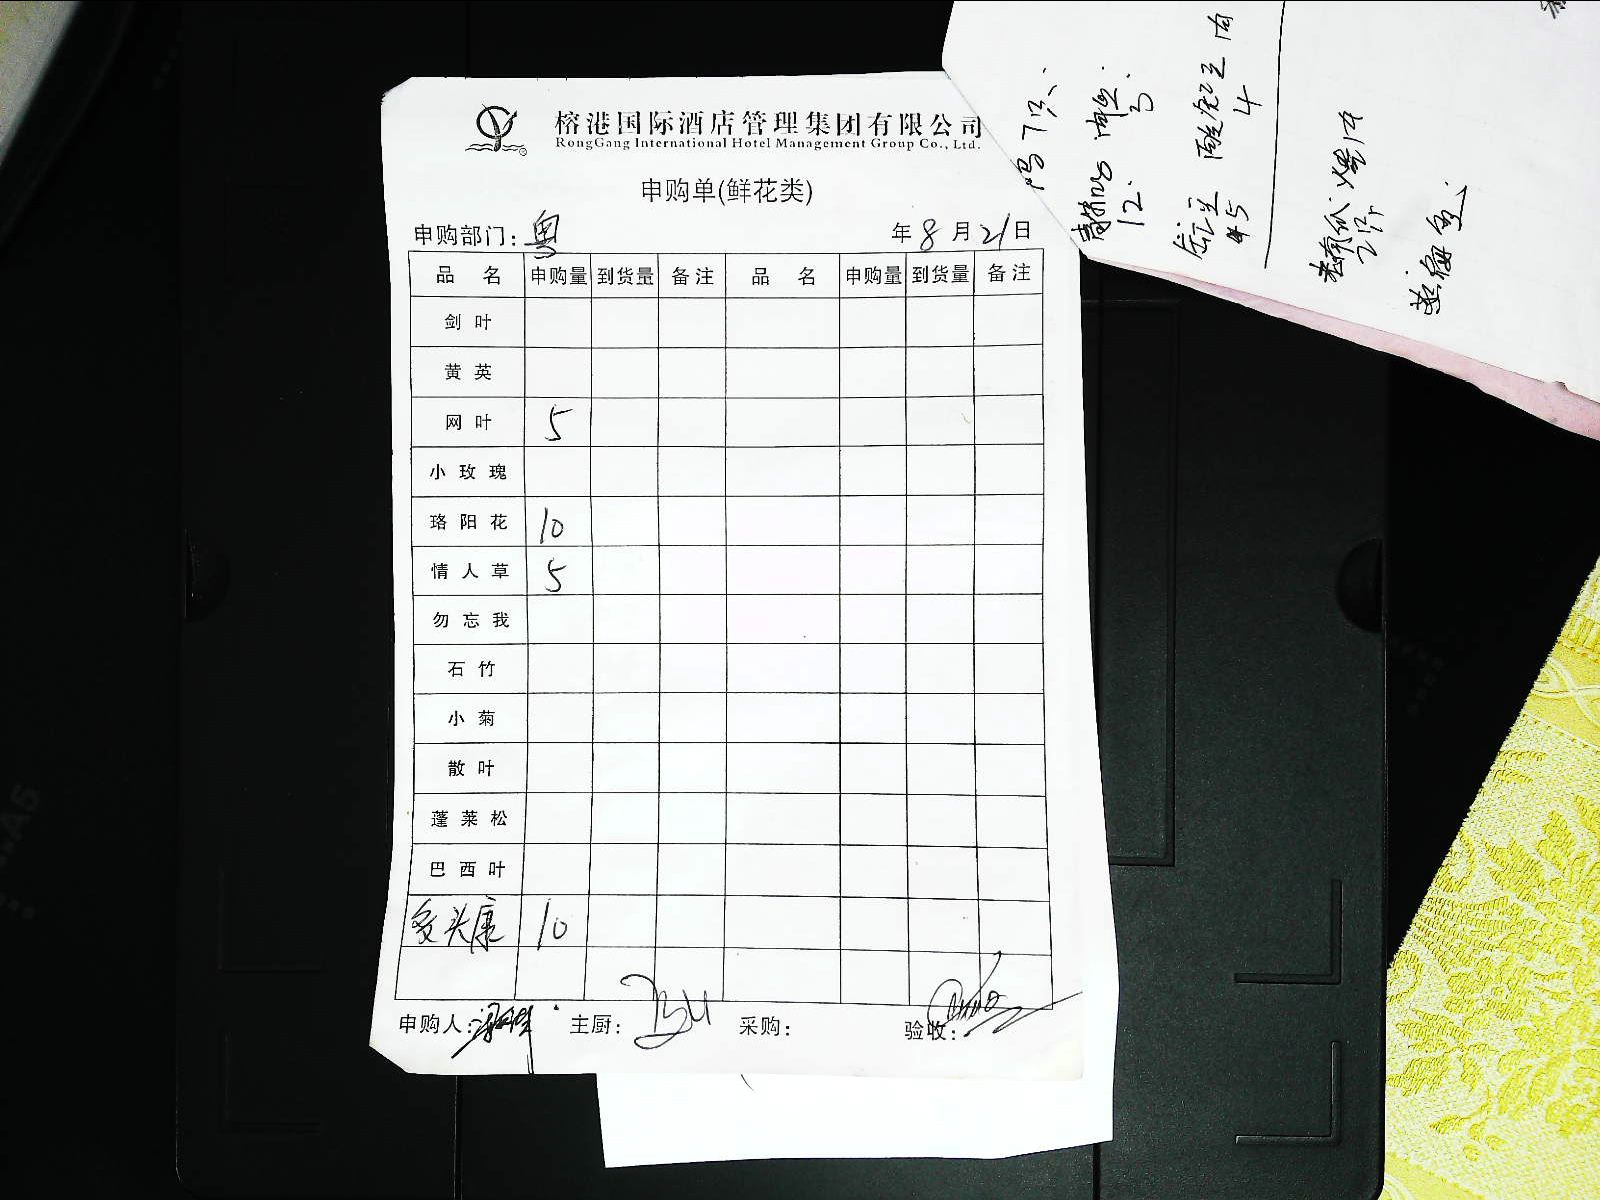 榕港国际酒店管理集团有限公司
RongGang International Hotel Management Group Co., Ltd.
申购单(鲜花类)
申购部门: 粤 年 8 月 21 日
品 名 申购量 到货量 备注 品 名 申购量 到货量 备注
剑叶
黄英
网叶 5
小玫瑰
珞阳花 10
情人草 5
勿忘我
石竹
小菊
散叶
蓬莱松
巴西叶
多头康 10
申购人: 主厨: 采购: 验收:
鸭7只
12
45
4